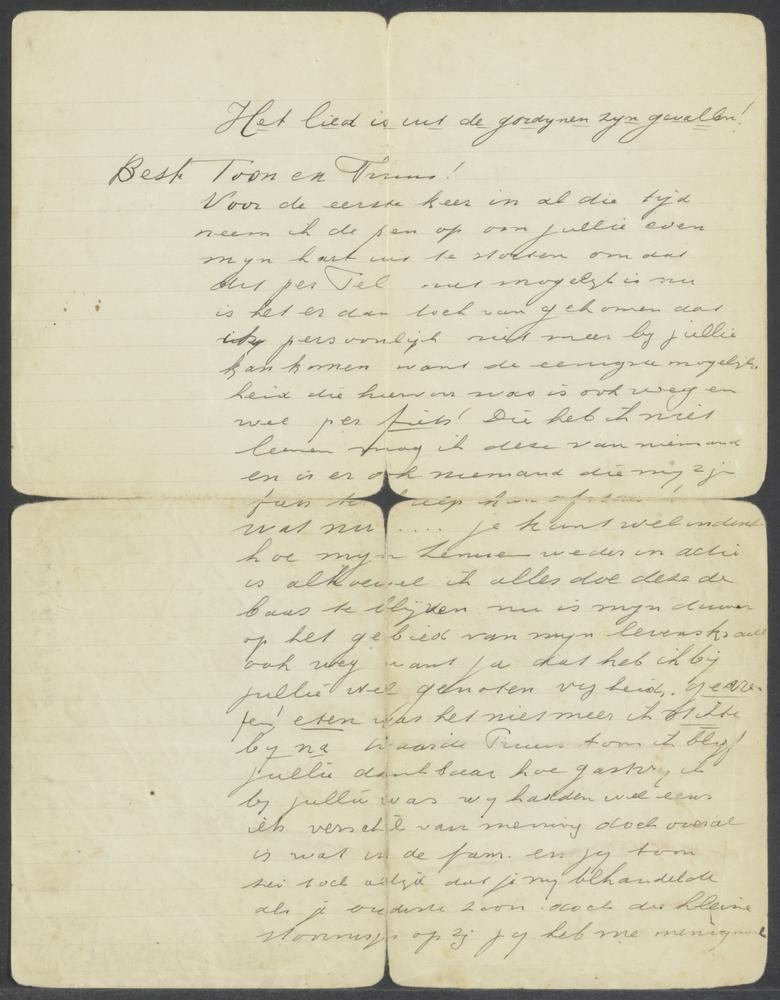 Het lied is uit de gordynen zyn gevallen!
Beste Toon en Truus!
Voor de eerste keer in al die tyd
neem ik de pen op om jullie even
myn hart uit te storten omdat
dit per Tel niet mogelyk is nu
is het er dan toch van gekomen dat
ik persoonlyk niet meer by jullie
kan komen want de eenigste mogelyk-
heid die hiervoor was is ook weg en
wel per fiets! Die heb ik niet
leenen mag ik deze van niemand
en is er ook niemand die my zyn
fiets
wat nu .... je kunt wel indenken
hoe myn zenuwen weder in actie
is alhoewel ik alles doe deze de
baas te blijven nu is myn
op het gebied van myn levenskracht
ook weg want ja dat heb ik bij
jullie wel genoten vryheid,
eten was het niet meer ik stikte
by na Waarde Truus toon ik blyf
jullie dankbaar hoe gastvry ik
by jullie was wy hadden wel eens
iets verschil van mening doch overal
is wat in de fam. en jy toon
zei toch altijd dat je my behandelde
als je oudste zoon doch die kleine
op zy jy heb me menigmaal